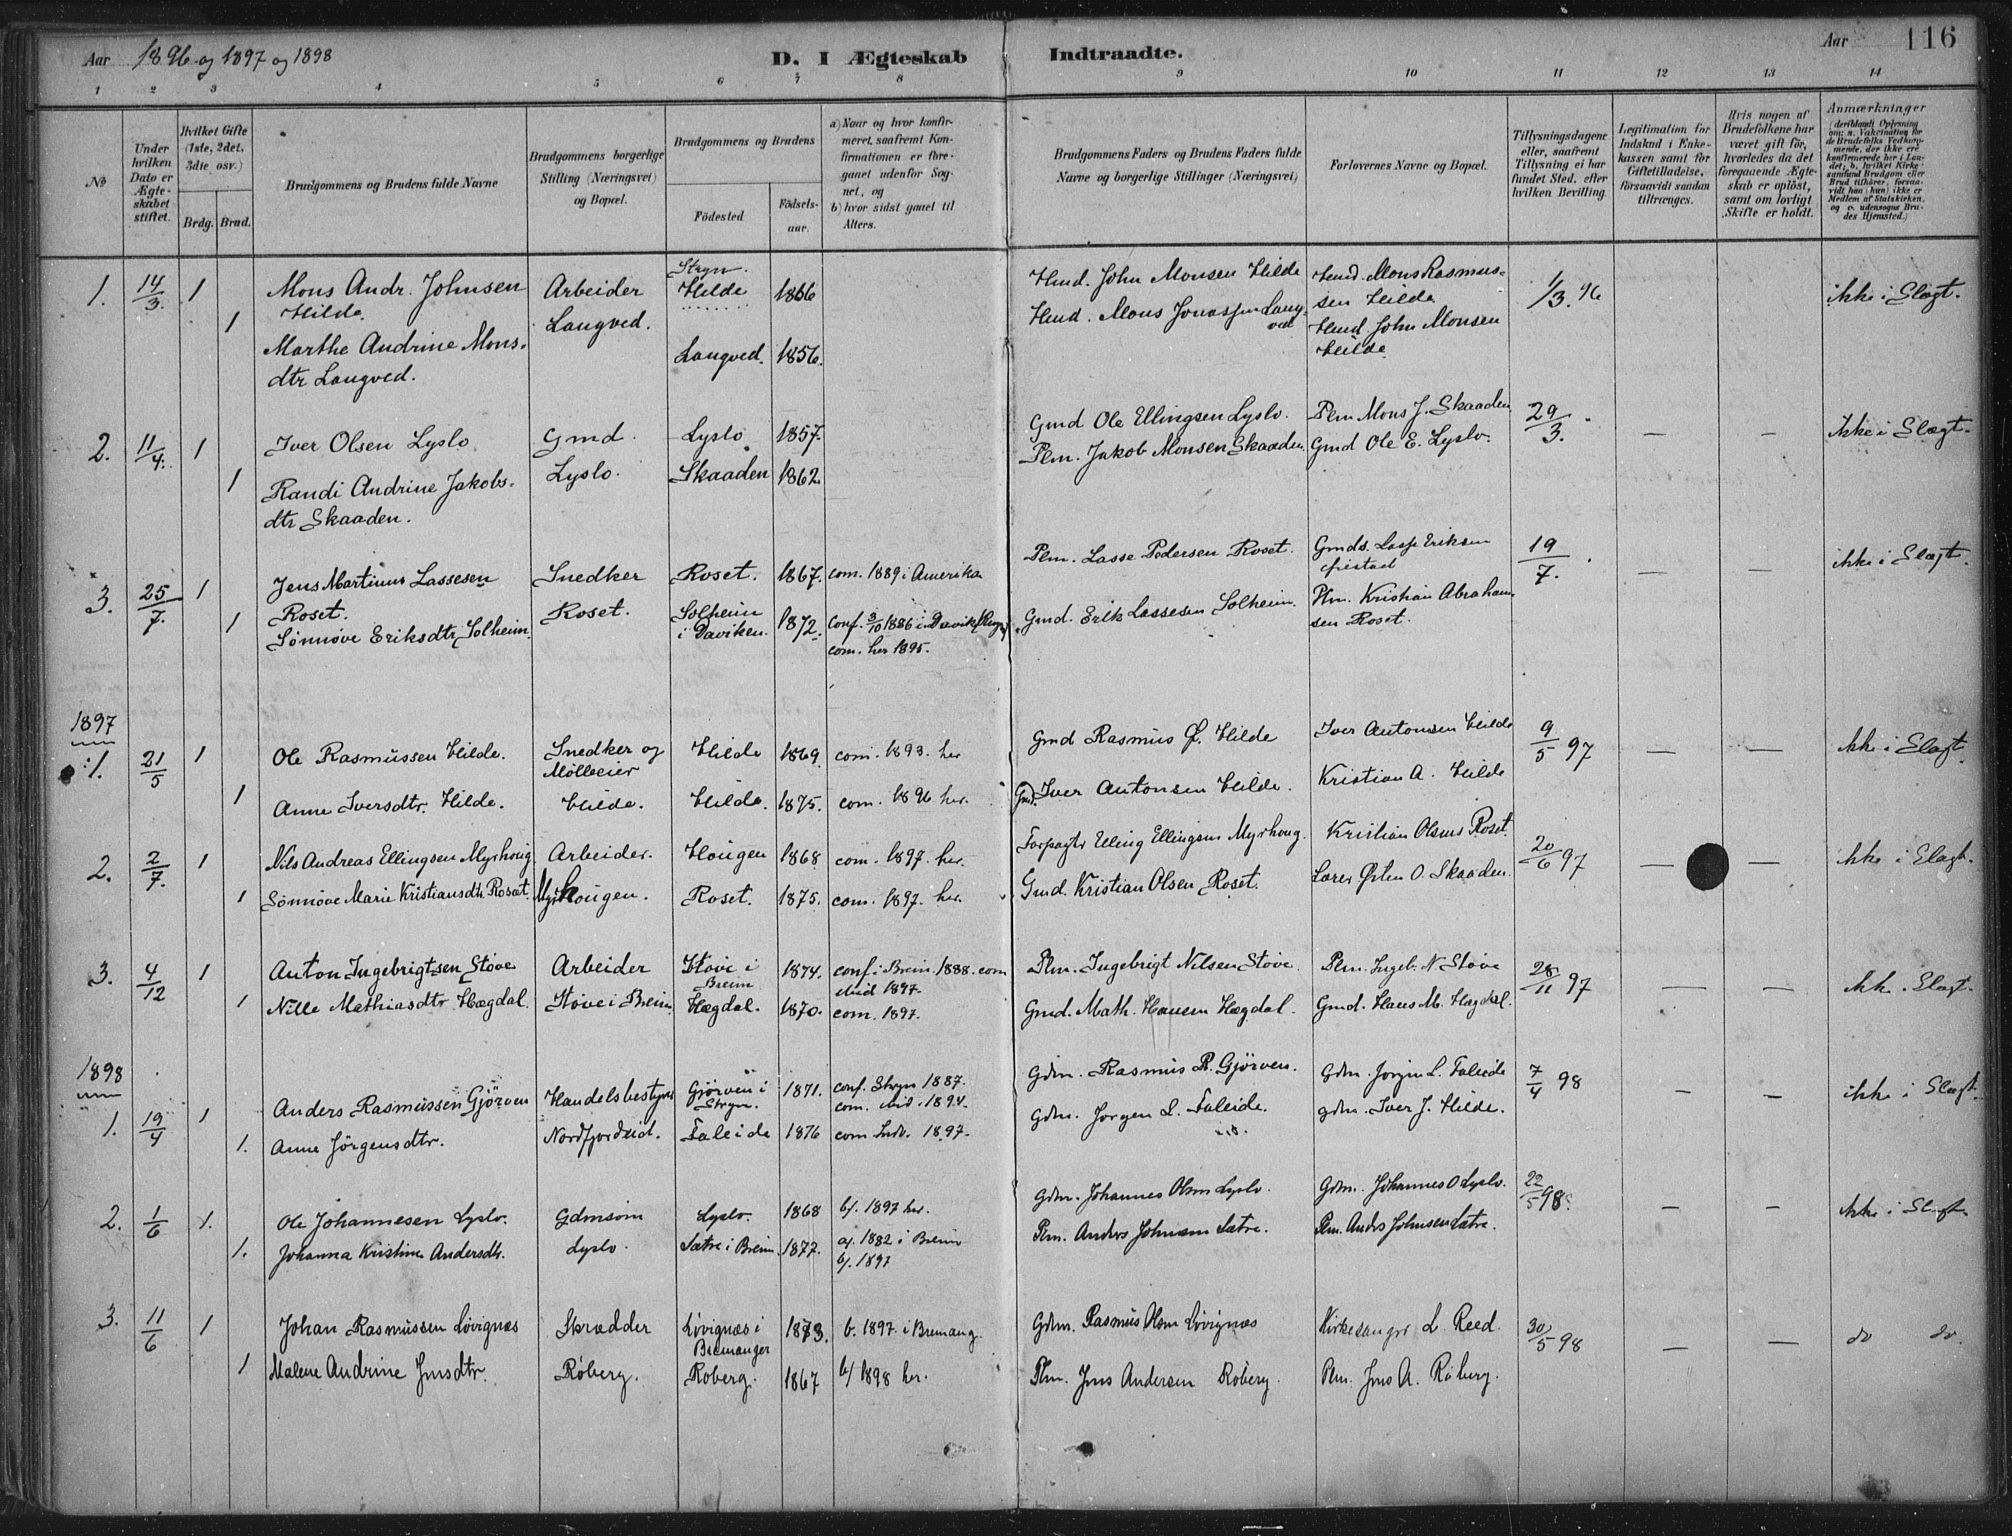 Aar 1896 og 1897 og 1898
D. I Ægteskab Indtraadte.
Aar 116
1 2 3 4 5 6 7 8 9 10 11 12 13 14
No
Under hvilken Dato er Ægteskabet stiftet.
Hvilket Gifte (1ste, 2det, 3die osv.)
Brdg. Brud.
Brudgommens og Brudens fulde Navne
Brudgommens borgerlige Stilling (Næringsvei) og Bopæl.
Brudgommens og Brudens
Födested
Födselsaar.
a) Naar og hvor konfirmeret, saafremt Konfirmationen er foregaaet udenfor Sognet, og
b) hvor sidst gaaet til Alters.
Brudgommens Faders og Brudens Faders fulde Navne og borgerlige Stillinger (Næringsvei)
Forlovernes Navne og Bopæl.
Tillysningsdagene eller, saafremt Tillysning ei har fundet Sted, efter hvilken Bevilling.
Legitimation for Indskud i Enkekassen samt for Giftetilladelse, forsaavidt saadan tiltrænges.
Hvis nogen af Brudefolkene har været gift før, hvorledes da det foregaaende Ægteskab er opløst, samt om lovligt Skifte er holdt.
Anmærkninger
1. 14/3. 1 Mons Andr. Johnsen Hilde. Arbeider Stryn. Hilde 1866 Hmd. John Monsen Hilde Hmd. Mons Rasmussen Hilde 1/3. 96 ikke i Slægt.
1 Marthe Andrine Monsdtr Langved. Langved. Langved. 1856. Hmd. Mons Jonassen Langved Hmd. John Monsen Hilde
2. 11/4. 1 Iver Olsen Lyslo Gmd. Lyslo 1857. Gmd Ole Ellingsen Lyslo. Plm Mons J. Skaaden 29/3. — — Ikke i Slægt.
1 Randi Andrine Jakobsdtr Skaaden. Lyslo. Skaaden 1862. Plm. Jakob Monsen Skaaden. Gmd Ole E. Lyslo.
3. 25/7. 1 Jens Martinus Lassesen Roset. Snedker Roset. 1867. com. 1889 i Amerika Plm. Lasse Pedersen Roset. Gmds. Lasse Eriksen 19/7. ikke i Slægt.
1 Sønnøve Eriksdtr Solheim. Roset. Solheim i Daviken. 1872. conf. 3/10 1886 i Davik com. her 1895. Gmd. Erik Lassesen Solheim. Hm. Kristian Abrahamsen Roset.
1897
1. 21/5 1 Ole Rasmussen Hilde. Snedker og Hilde 1869. com. 1893. her Gmd Rasmus Ø. Hilde Iver Antonsen Hilde 9/5 97 — — Ikke i Slægt.
1 Anne Iversdtr. Hilde. Hilde. Hilde. 1875. com. 1896 her. Gmd. Iver Antonsen Hilde. Kristian A. Hilde
2. 2/7. 1 Nils Andreas Ellingsen Myrhoug Arbeider. Hougen 1868 com. 1897. her. Forpagtr Elling Ellingsen Myrhoug. Kristian Olsens Roset. 20/6 97 — — Ikke i Slægt.
1 Sønnøve Marie Kristiansdtr Roset. Myrhougen. Roset. 1875. com. 1897. her. Gmd. Kristian Olsen Roset. Lærer Østen O. Skaaden.
3. 4/12 1 Anton Ingebrigtsen Støve Arbeider Støve i Breim 1874. conf. i Breim. 1888. com. 1897. Plm. Ingebrigt Nilsen Støve. Plm. Ingeb. N Støve 28/11 97 — — Ikke i Slægt.
1 Nille Mathiasdtr Hægdal. Støve i Breim. Hægdal. 1870. com. 1897. Gmd. Math. Hansen Hægdal. Gmd. Hans M. Hægdal.
1898
1. 19/4 1 Anders Rasmussen Gjörven Handelsbestyrer Gjörven i Stryn. 1871. conf. Stryn 1887. com. Nid. 1894. Gdm. Rasmus R. Gjörven. Gdm. Jørgen L. Faleide 7/4 98 — — ikke i Slægt.
1. Anne Jörgensdtr. Nordfjordeid. Faleide 1876 com. Indv. 1897. Gdm. Jørgen L. Faleide. gdm. Iver J. Hilde.
2. 1/6 1. Ole Johannesen Lyslo. Gdmsøn Lyslo. 1868 b/. 1897 her. Gdm. Johannes Olsen Lyslo. Gdm. Johannes O Lyslo. 22/5 98. — — Ikke i Slægt.
1. Johanna Kristine Andersdtr. Lyslo. Sætre i Breim. 1877. a/. 1882 i Breim b/. 1897 Plm. Anders Johnsen Sætre. Plm. Anders Johnsen Sætre.
3. 11/6 1 Johan Rasmussen Lövignæs Skrædder Lövignæs i Bremanger 1873. b. 1897 i Bremang. Gdm. Rasmus Olsen Lövignæs Kirkesanger L. Reed. 30/5 98 — — do do.
1 Malene Andrine Jensdtr. Röberg. Röberg. 1867 b/ 1898 her. Plm. Jens Andersen Röberg. Plm. Jens A. Röberg.